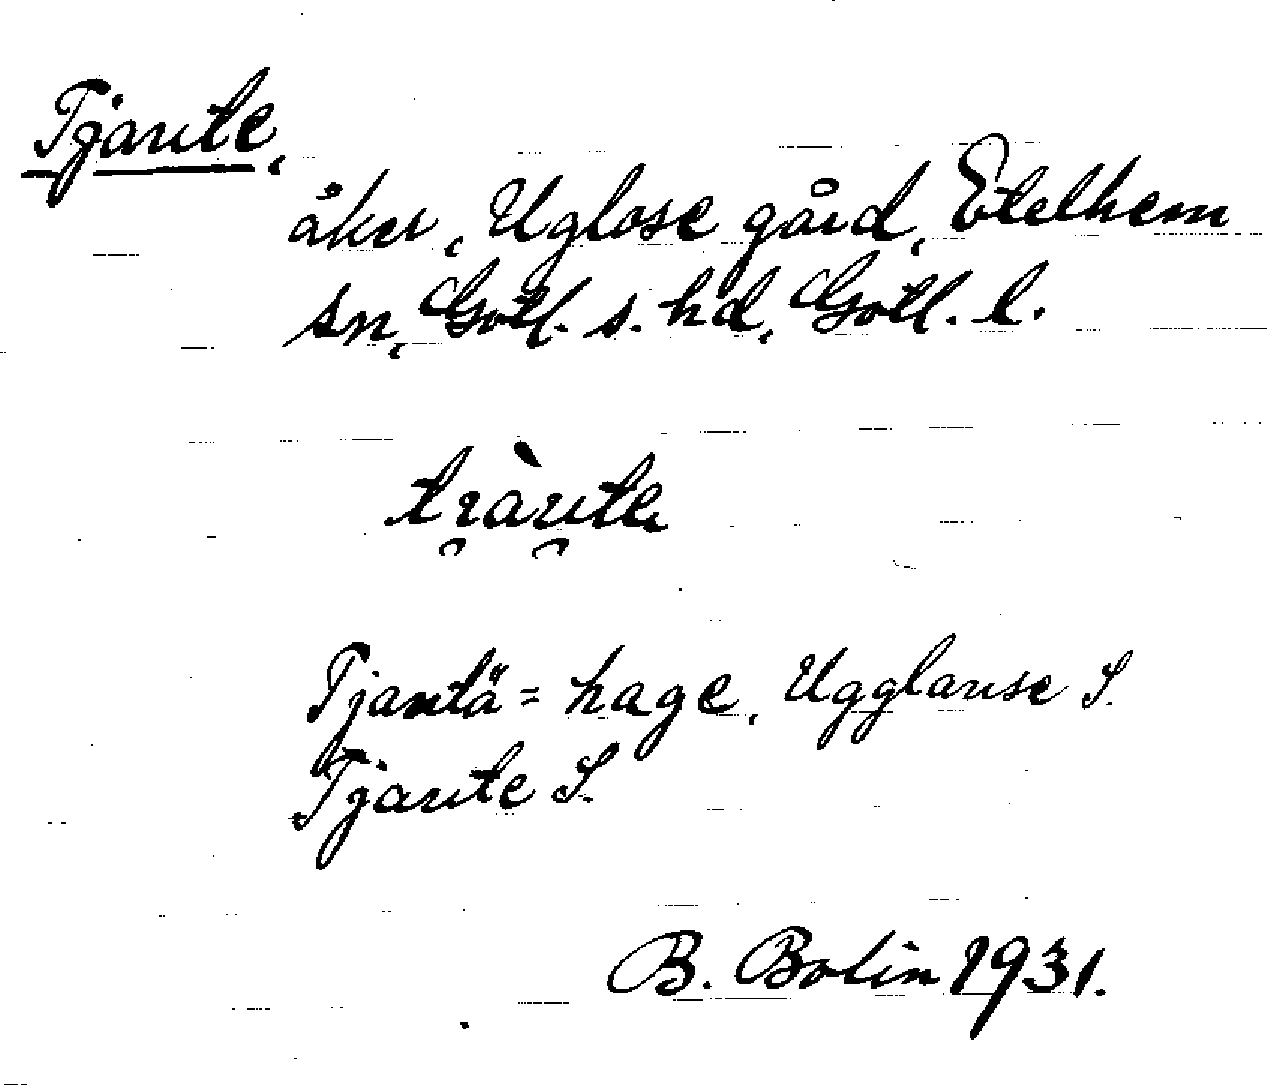 Tjaute,
åker, Uglose gård, Etelhem
sn, Gotl. s. hd, Gotl. l.
Tjautä = hage, Ugglause S.
Tjaute S.
B. Bolin 1931.